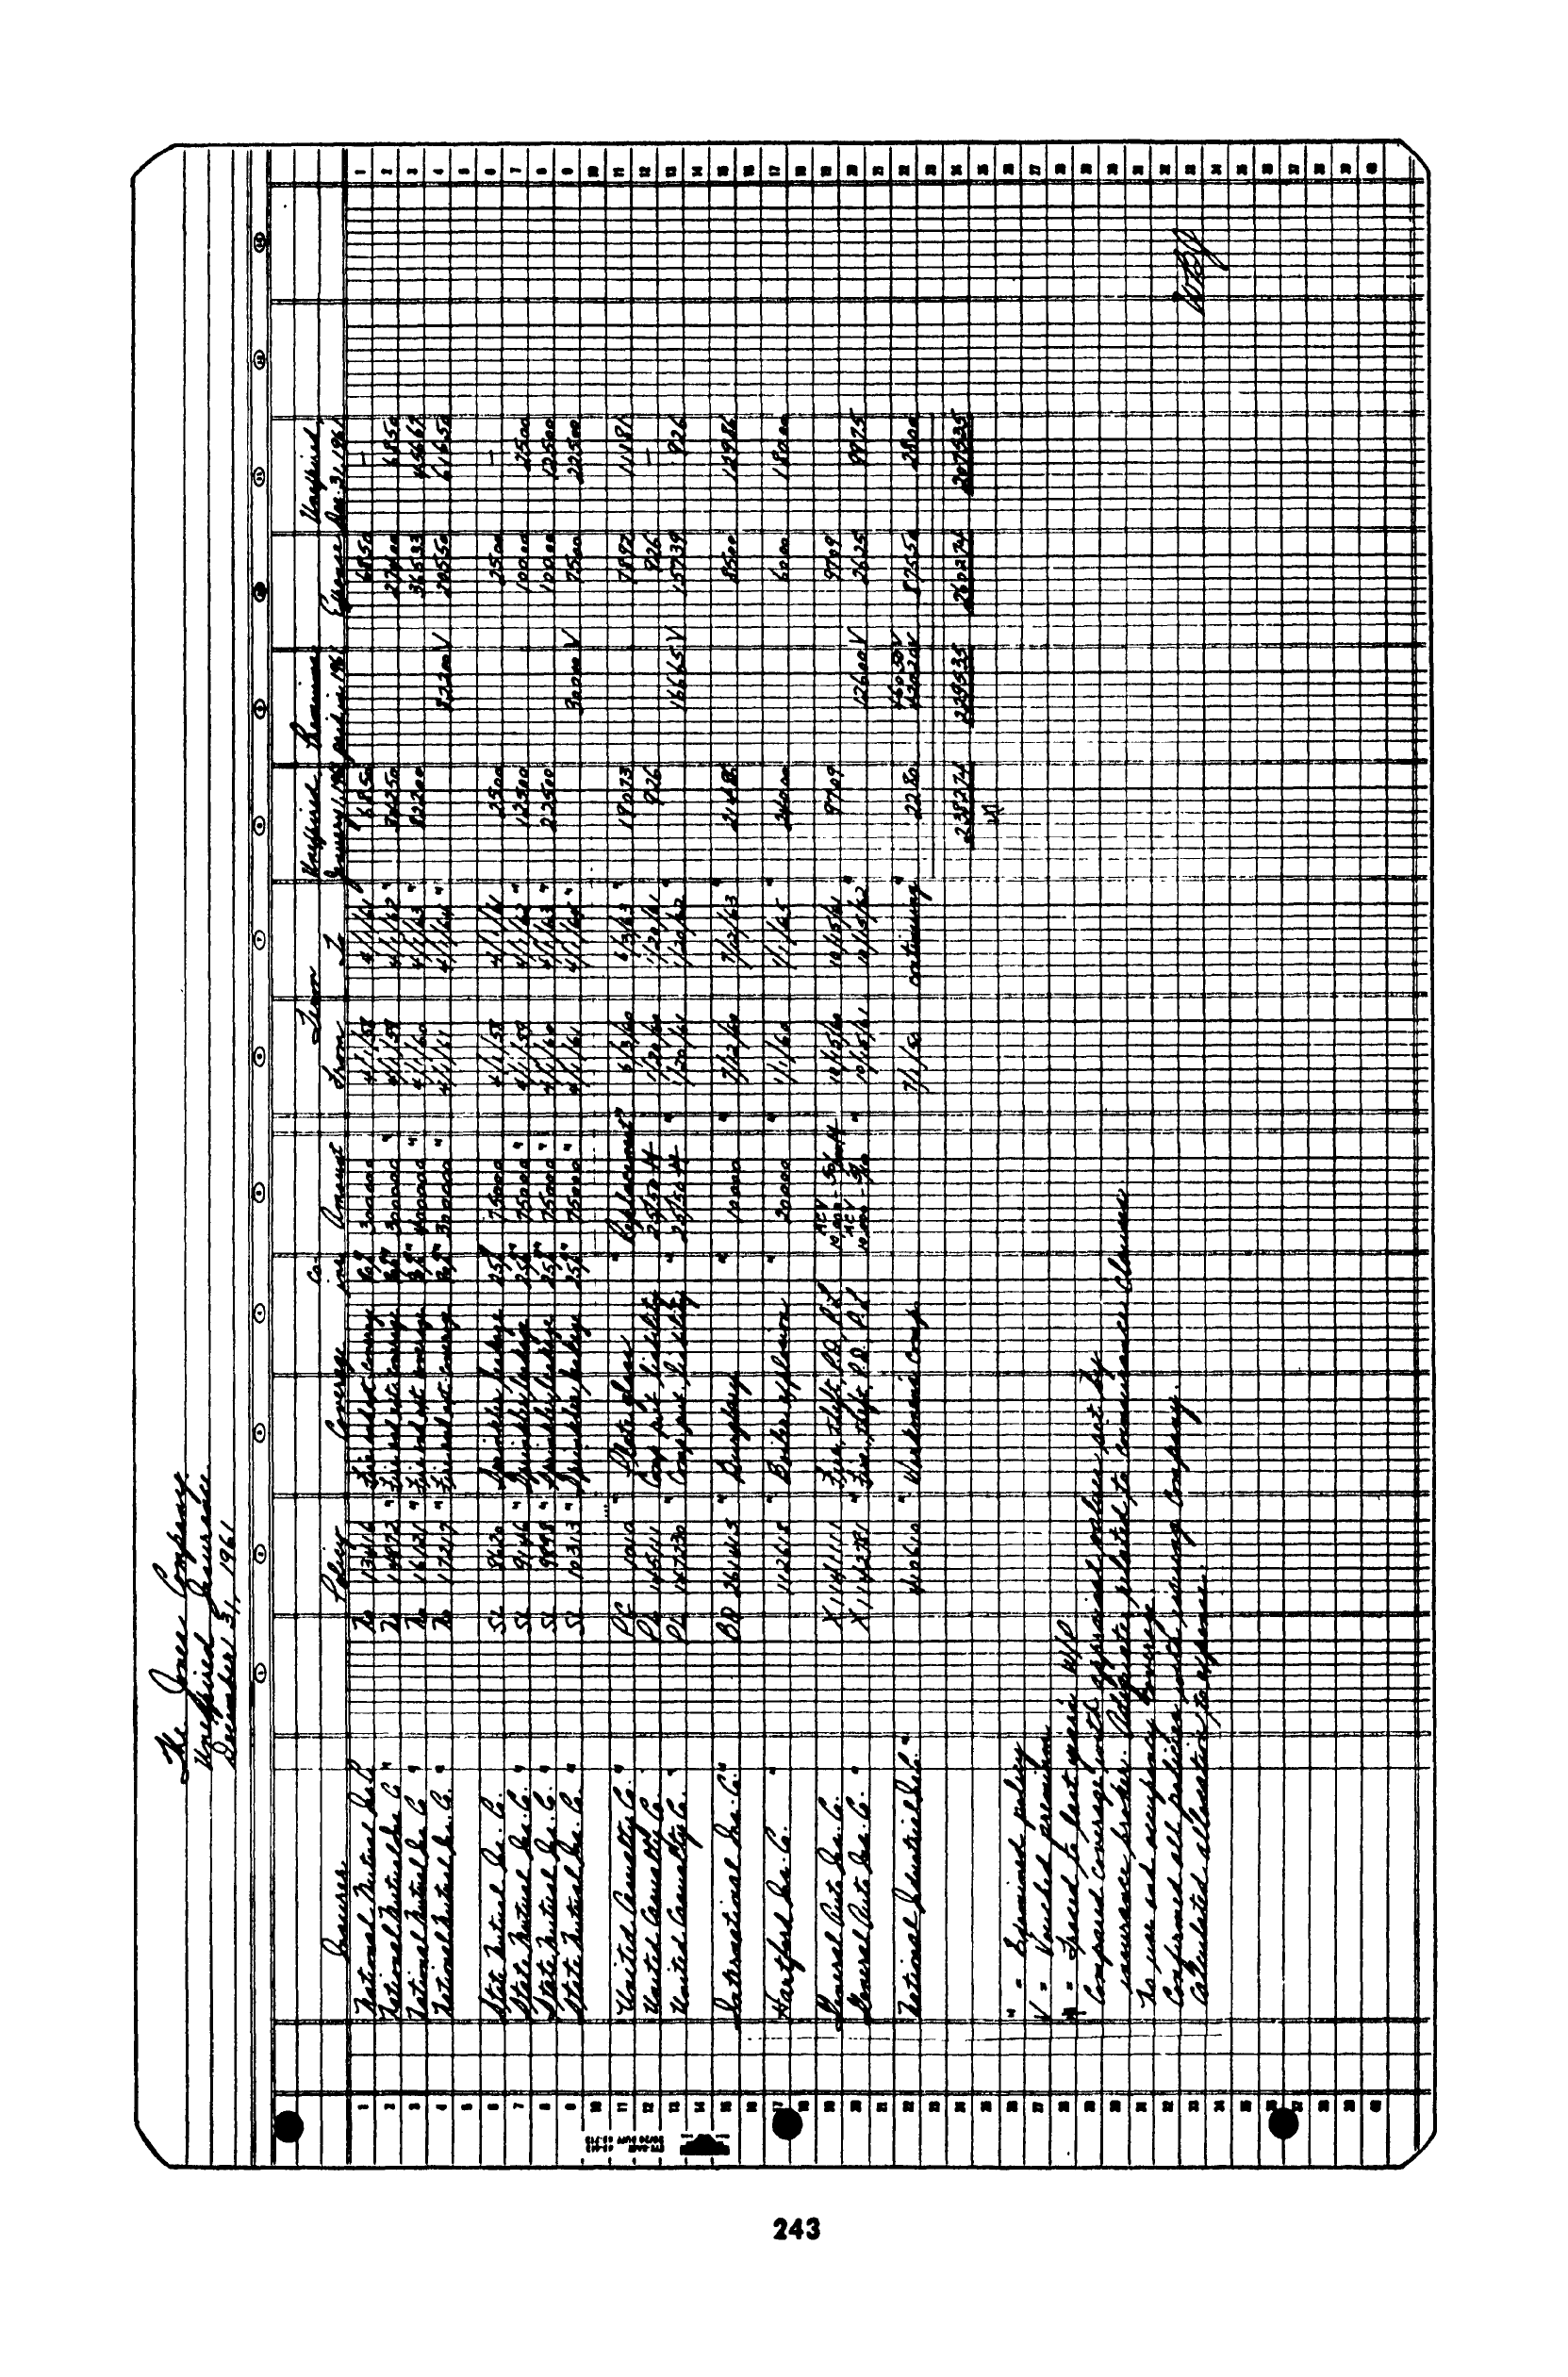 The Jones Company
Unexpired Insurance
December 31, 1961
Insurer Policy Coverage Co-ins Amount Term Unexpired Premiums Expense Unexpired
From To January 1, 1961 paid in 1961 Dec. 31, 1961
1 National Mutual Ins Co No 13416 " Fire and ext coverage 300000 " 4/1/58 4/1/61 " 6850 6850 — 1
2 National Mutual Ins Co " No 14972 " Fire and ext coverage 300000 " 4/1/59 4/1/62 " 34250 27400 6850 2
3 National Mutual Ins Co " No 16121 " Fire and ext coverage 400000 " 4/1/60 4/1/63 " 82200 36533 45667 3
4 National Mutual Ins. Co. " No 17217 " Fire and ext coverage 300000 " 4/1/61 4/1/64 " 82200 V 20550 61650 4
5 5
6 State Mutual Ins. Co. SL 8620 Sprinkler leakage 25% 75000 4/1/58 4/1/61 2500 2500 — 6
7 State Mutual Ins. Co. " SL 9146 " Sprinkler leakage 25% " 75000 " 4/1/59 4/1/62 " 12500 10000 2500 7
8 State Mutual Ins. Co. " SL 9898 " Sprinkler leakage 25% " 75000 " 4/1/60 4/1/63 " 22500 10000 12500 8
9 State Mutual Ins. Co. " SL 10313 " Sprinkler leakage 25% " 75000 " 4/1/61 4/1/64 " 30000 V 7500 22500 9
10 10
11 United Casualty Co. " PC 1012 " Plate glass " Replacement " 6/3/60 6/3/63 " 19073 7892 11181 11
12 United Casualty Co. PL 145111 Comp. pub. liability 25/50 M 1/20/60 1/20/61 926 926 — 12
13 United Casualty Co. " PL 157230 " Comp. pub. liability " 25/50 M " 1/20/61 1/20/62 " 16665 V 15739 926 13
14 14
15 International Ins. Co. " BD 261415 " Burglary " 10000 " 7/12/60 7/12/63 " 21486 8500 12986 15
16 16
17 Hartford Ins. Co. " 112615 " Boiler explosion " 20000 " 1/1/60 1/1/65 " 24000 6000 18000 17
18 18
19 General Auto Ins. Co. X1141111 Fire, theft, P.D., P.L. ACV 10/15/60 10/15/61 9709 9709 19
20 General Auto Ins. Co. " X1142781 " Fire, theft, P.D., P.L. ACV " 10/15/61 10/15/62 " 12600 V 2625 9975 20
21 21
22 National Industrial Ins. Co. " 410610 " Workmens Comp. 7/1/50 continuing " 2280 87550 2800 22
23 23
24 238274 229535 260274 207535 24
25 25
26 " = Examined policy 26
27 V = Vouched premium 27
28 = Traced to last year's W/P 28
29 Compared coverage with appraisal values set by 29
30 insurance broker. Adequate, related to coinsurance clauses 30
31 No use and occupancy coverage. 31
32 Confirmed all policies with issuing company. 32
33 Calculated allocation to expense. 33
34 34
35 35
36 36
37 37
38 38
39 39
40 40
243